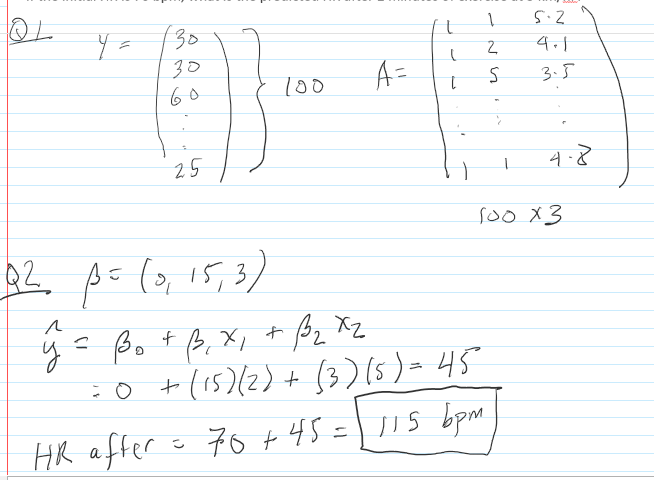 Q1
y = (30 30 60 : : 25) } 100
A = (1 1 5.2
1 2 4.1
1 5 3.5
: : :
1 1 4.8)
100 x 3
Q2 β = (0, 15, 3)
ŷ = β0 + β1 x1 + β2 x2
= 0 + (15)(2) + (3)(5) = 45
HR after = 70 + 45 = 115 bpm